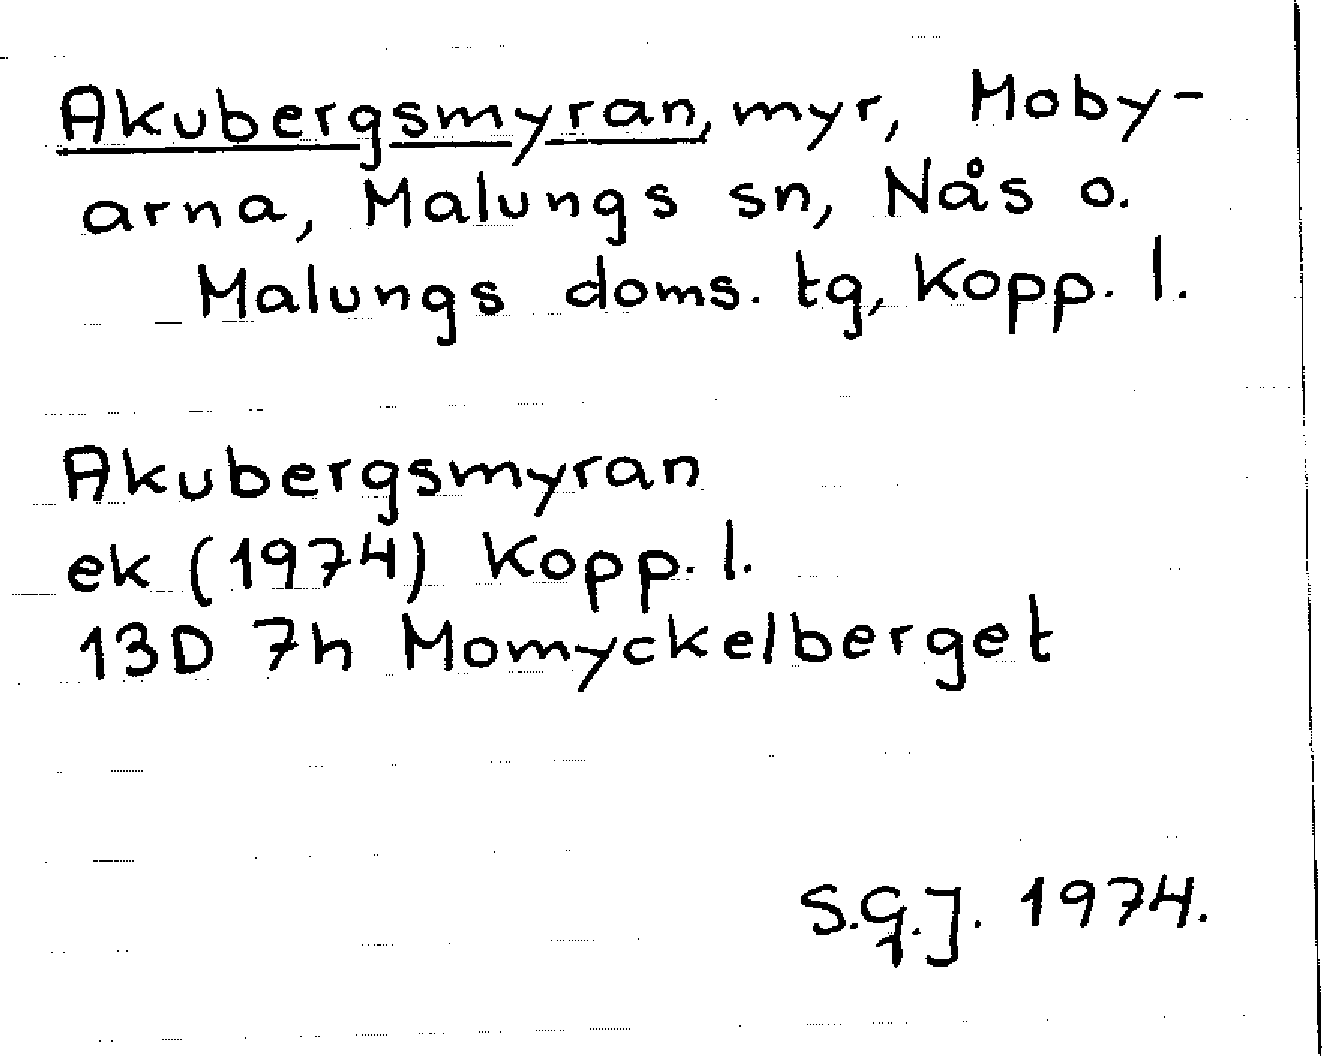 Akubergsmyran, myr, Moby-
arna, Malungs sn, Nås o.
Malungs doms. tg, Kopp. l.
Akubergsmyran
ek (1974) Kopp. l.
13D 7h Momyckelberget
S.G.J. 1974.